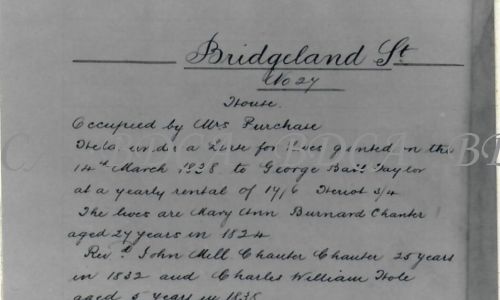 Bridgeland St.
No 27
House.
Occupied by Mrs Purchase
Held under a Lease for Lives granted on the
14th March 1838 to George Taylor
at a yearly rental of 17/6 Heriot 3/4
The lives are Mary Ann Burnard Chanter
aged 27 years in 1824
Revd. John Mill Chanter Chanter 25 years
in 1832 and Charles William Hole
aged 5 years in 1838